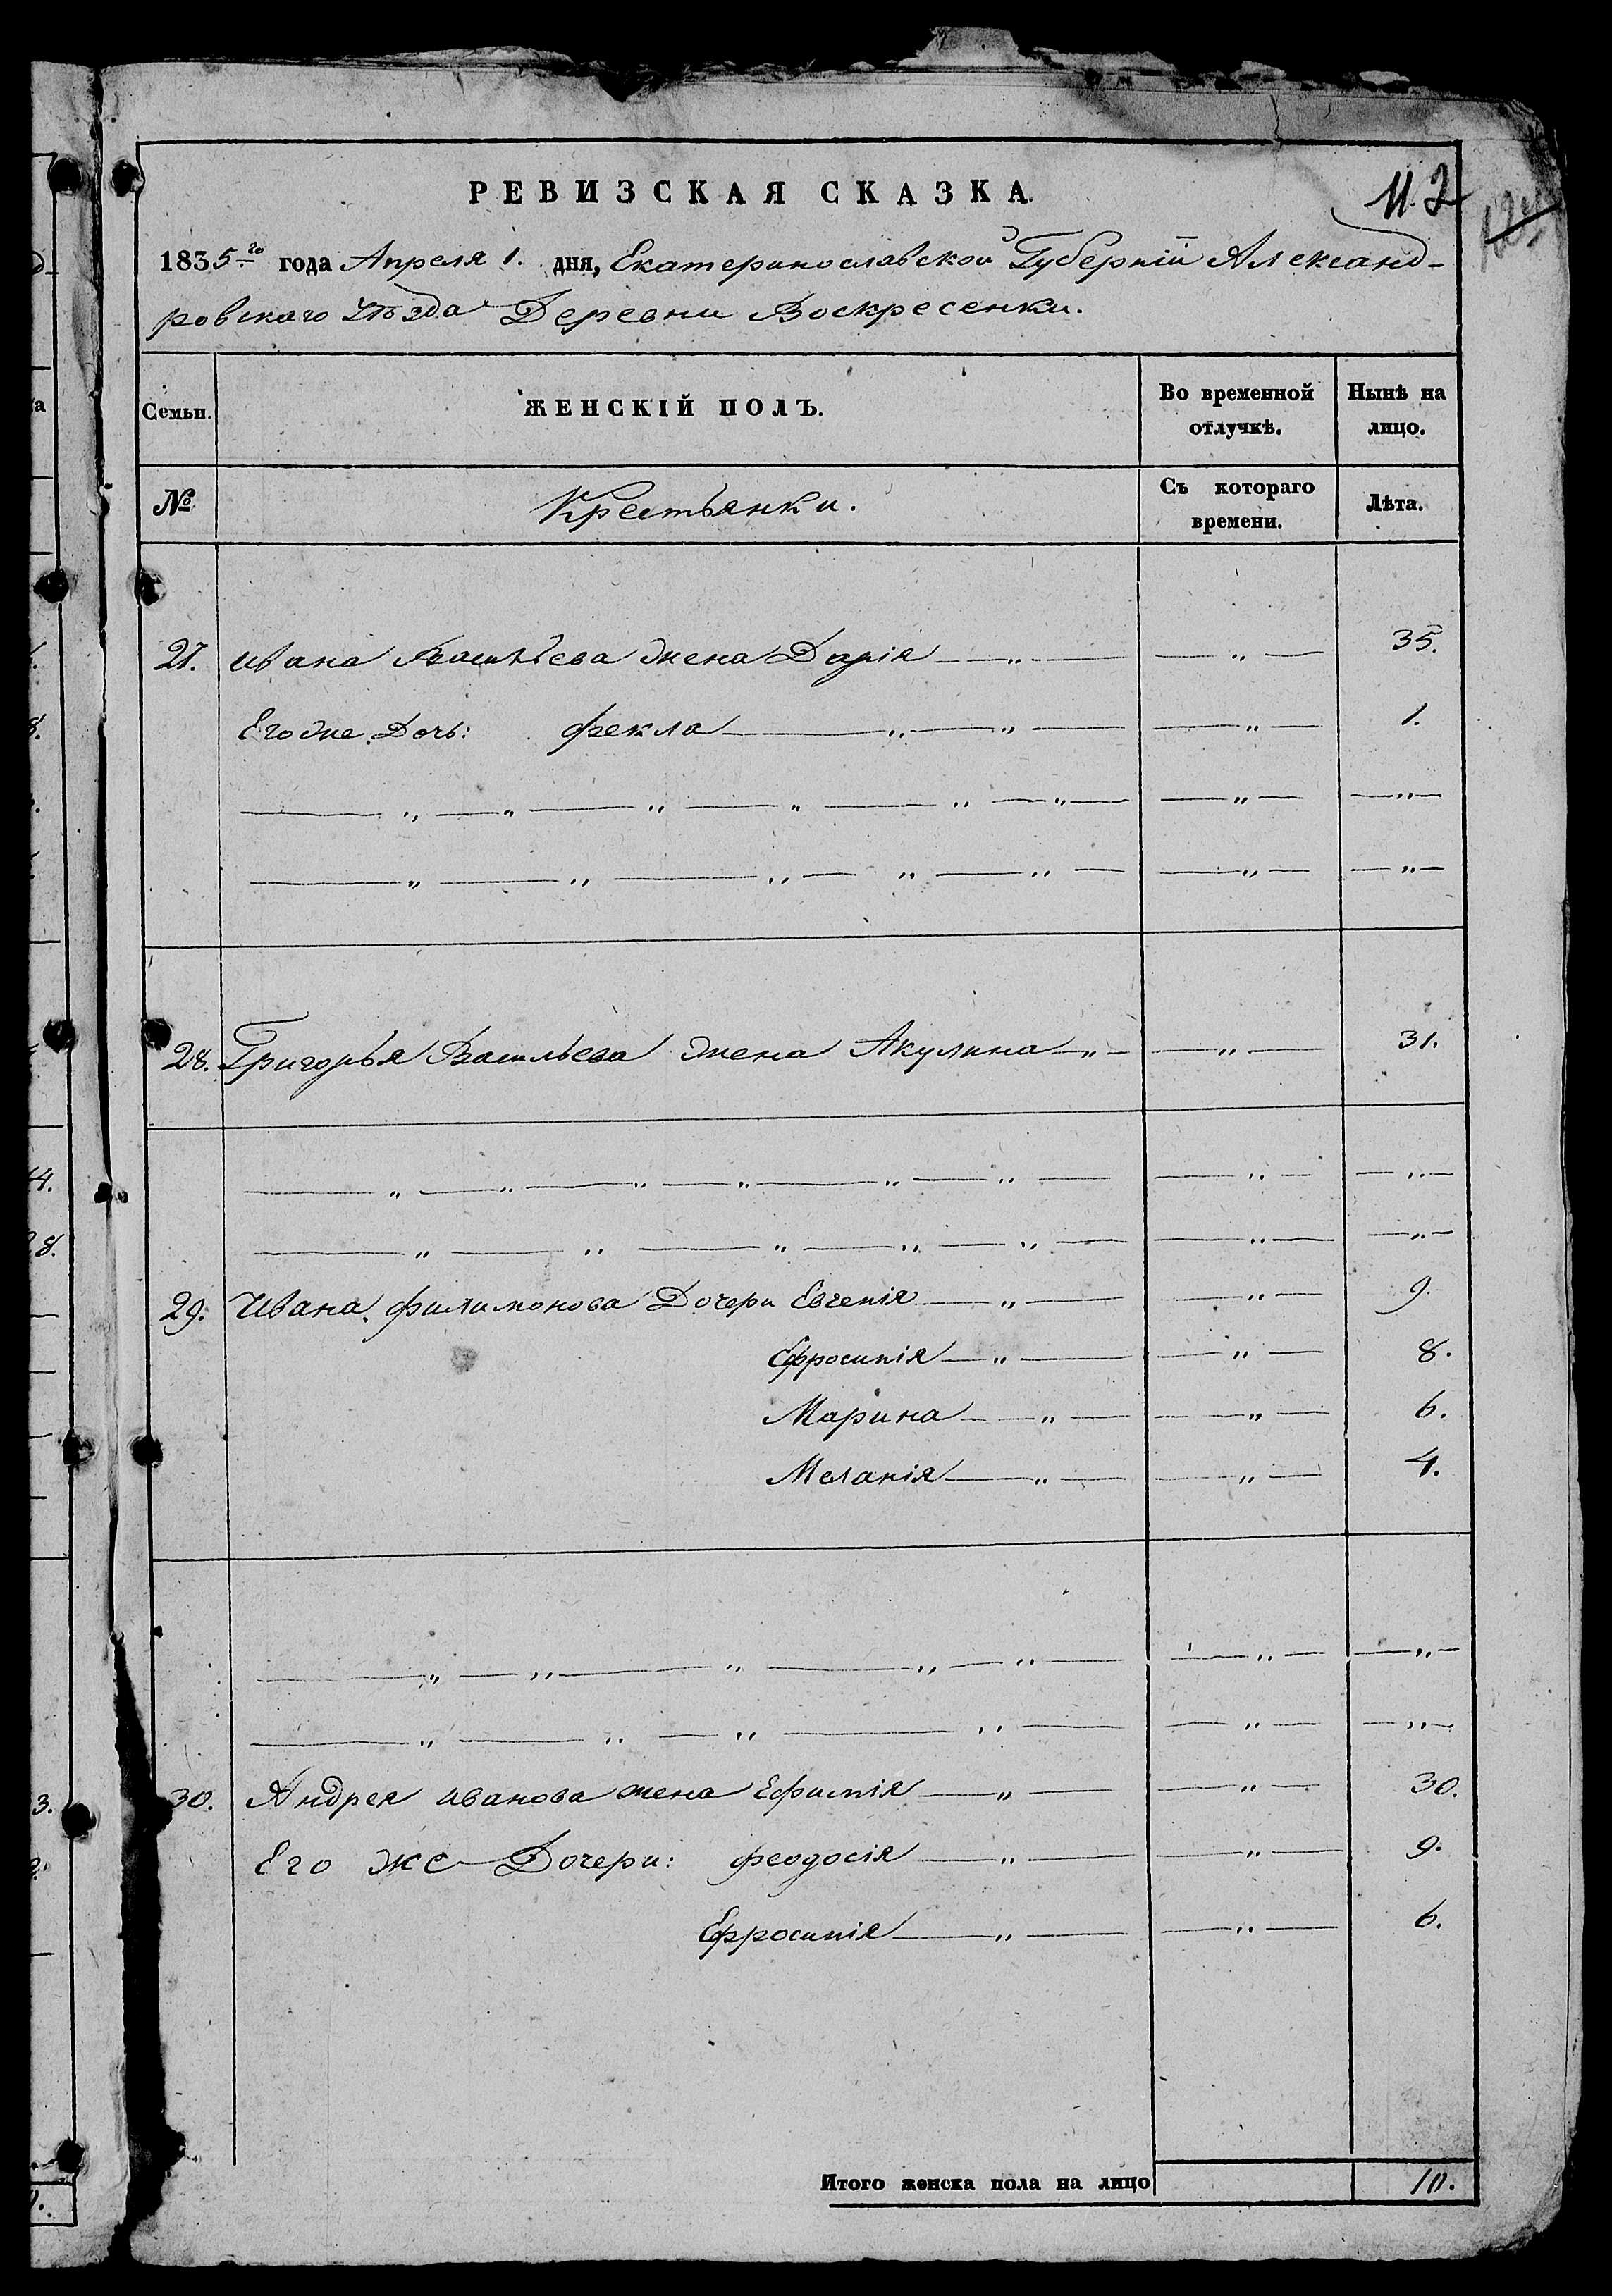 РЕВИЗСКАЯ СКАЗКА.
1835го года Апреля 1. дня, Екатеринославской Губерніи Александ-
ровскаго Уѣзда Деревни Воскресенки.
Семьи. ЖЕНСКІЙ ПОЛЪ. Во временной отлучкѣ. Нынѣ на лицо.
№ Крестьянки. Съ котораго времени. Лѣта.
27. Ивана Васильева жена Дарія — „ — — „ — 35.
Его же Дочь: Фекла — „ — „ — — „ — 1.
— „ — „ — „ — „ — „ — „ — — „ — — „ —
— „ — „ — „ — „ — „ — — „ — — „ —
28. Григорья Васильева жена Акулина — „ — — „ — 31.
— „ — „ — „ — „ — „ — „ — — „ — — „ —
— „ — „ — „ — „ — „ — — „ — — „ —
29. Ивана Филимонова Дочери Евгенія — „ — — „ — 9.
Ефросинія — „ — — „ — 8.
Марина — „ — — „ — 6.
Меланія — „ — — „ — 4.
— „ — „ — „ — „ — „ — — „ — — „ —
— „ — „ — „ — „ — — „ — — „ —
30. Андрея Иванова жена Ефимія — „ — — „ — 30.
Его же Дочери: Феодосія — „ — — „ — 9.
Ефросинія — „ — — „ — 6.
Итого женска пола на лицо 10.